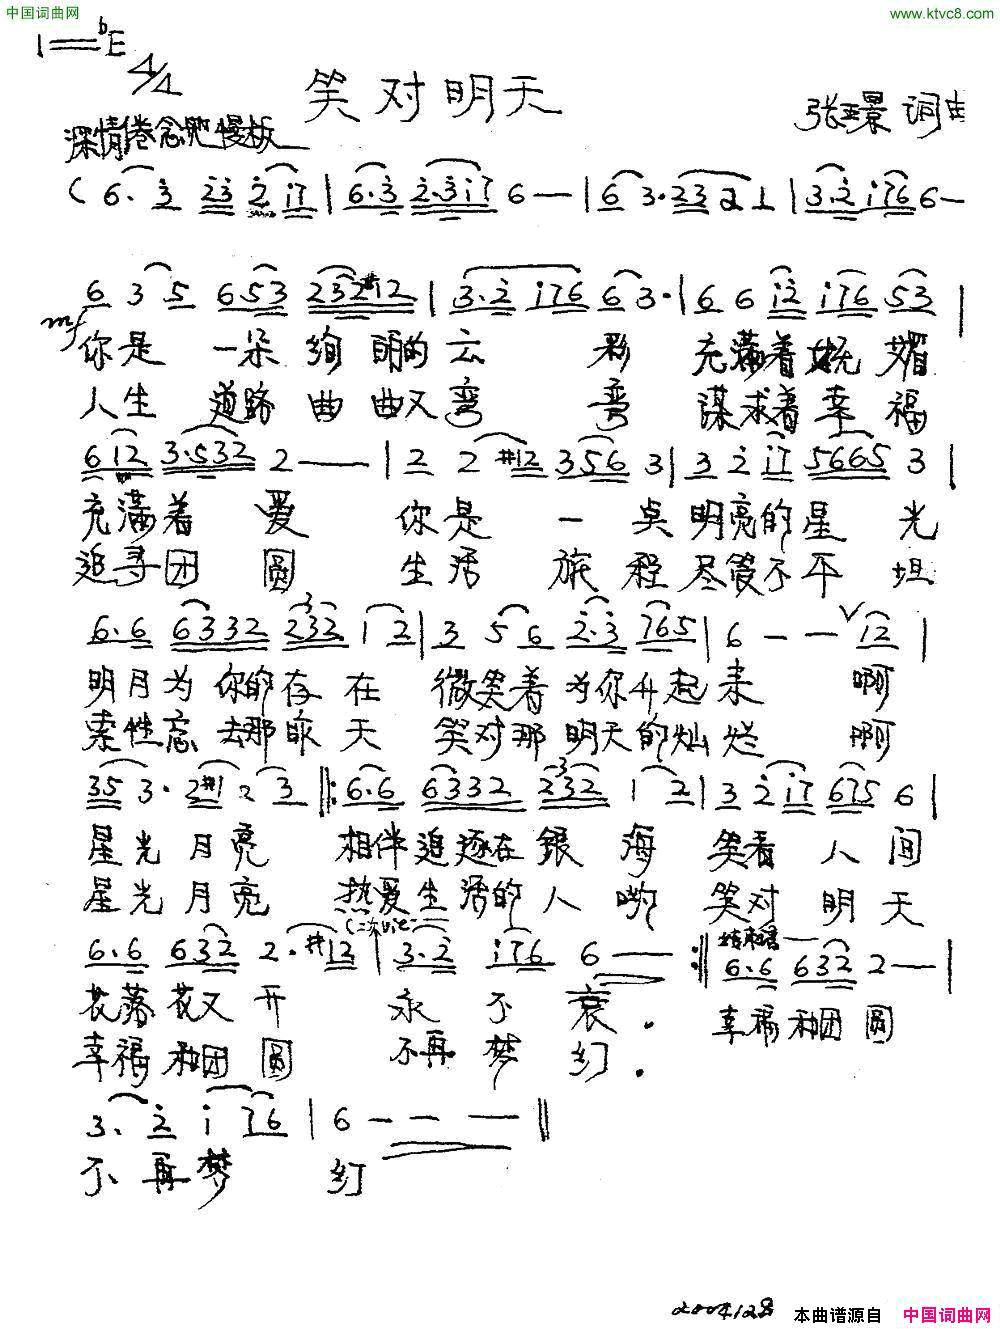 中国词曲网 www.ktvc8.com
1=♭E 4/4
笑对明天
张玉景 词曲
深情倦念地慢板
(6. 3 23 2 i7 | 6.3 2.3i7 6 — — | 6 3.23 2 1 | 3.2 i76 6 —
6 3 5 653 232#12 | 3.2 i76 6 3. | 6 6 i2 i76 53 |
mf
你是 一朵 绚 明的 云 彩 充满着 妩 媚
人生 道路 曲 曲又 弯 弯 谋求着 幸 福
6 i2 3.532 2 — — — | 2 2 #12 356 3 | 3 2 i7 5665 3 |
充满着 爱 你是 一 点 明亮的星 光
追寻团 圆 生活 旅 程 尽管不平 坦
6.6 6332 232 1 2 | 3 5 6 2.3 765 | 6 — — i2 |
明月为 你的存 在 微笑着 为你升起 来 啊
索性忘 去那昨 天 笑对那 明天的灿 烂 啊
35 3. 2#1. 2 3 ‖: 6.6 6332 232 1 2 | 3 2 i7 675 6 |
星光 月 亮 相伴追逐在 银 海 笑看 人 间
星光 月 亮 热爱生活的 人 哟 笑对 明 天
6.6 632 2. #12 | 3.2 i76 6 — — :‖ 6.6 632 2 — — |
结束语
花落花又 开 永 不 衰. 幸福和团 圆
幸福和团 圆 不再 梦 幻.
3. 2 i 76 | 6 — — — ‖
不 再 梦 幻
本曲谱源自 中国词曲网